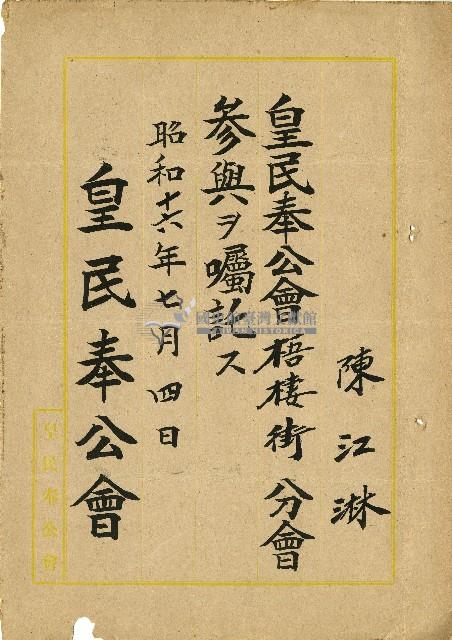 陳江淋
皇民奉公會梧棲街分會
參與ヲ囑託ス
昭和十六年七月四日
皇民奉公會
皇民奉公會
國史館臺灣文獻館